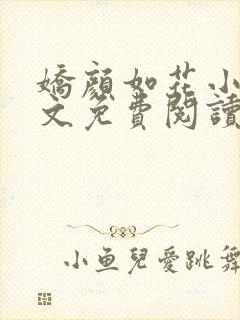 嬌顏如花小
文免費閱讀
小魚兒愛跳舞